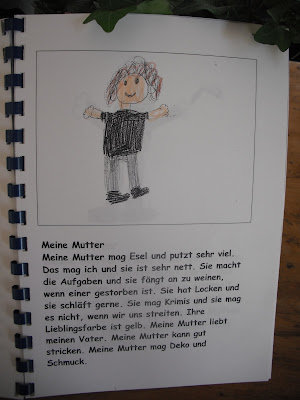 Meine Mutter
Meine Mutter mag Esel und putzt sehr viel.
Das mag ich und sie ist sehr nett. Sie macht
die Aufgaben und sie fängt an zu weinen,
wenn einer gestorben ist. Sie hat Locken und
sie schläft gerne. Sie mag Krimis und sie mag
es nicht, wenn wir uns streiten. Ihre
Lieblingsfarbe ist gelb. Meine Mutter liebt
meinen Vater. Meine Mutter kann gut
stricken. Meine Mutter mag Deko und
Schmuck.